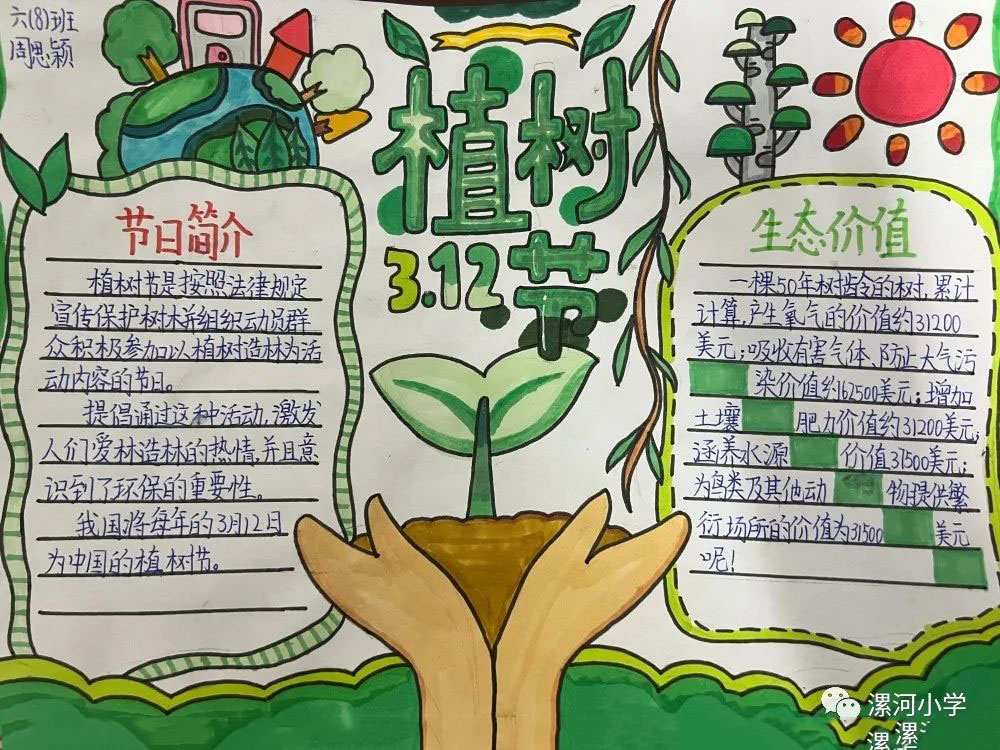 六(8)班
周思颖
植树
3.12 节
节日简介
植树节是按照法律规定
宣传保护树木并组织动员群
众积极参加以植树造林为活
动内容的节日。
提倡通过这种活动,激发
人们爱林造林的热情,并且意
识到了环保的重要性。
我国将每年的3月12日
为中国的植树节。
生态价值
一棵50年树龄的树,累计
计算,产生氧气的价值约31200
美元;吸收有害气体、防止大气污
染价值约62500美元;增加
土壤肥力价值约31200美元;
涵养水源价值37500美元;
为鸟类及其他动物提供繁
衍场所的价值为31500美元
呢!
漯河小学
漯漯